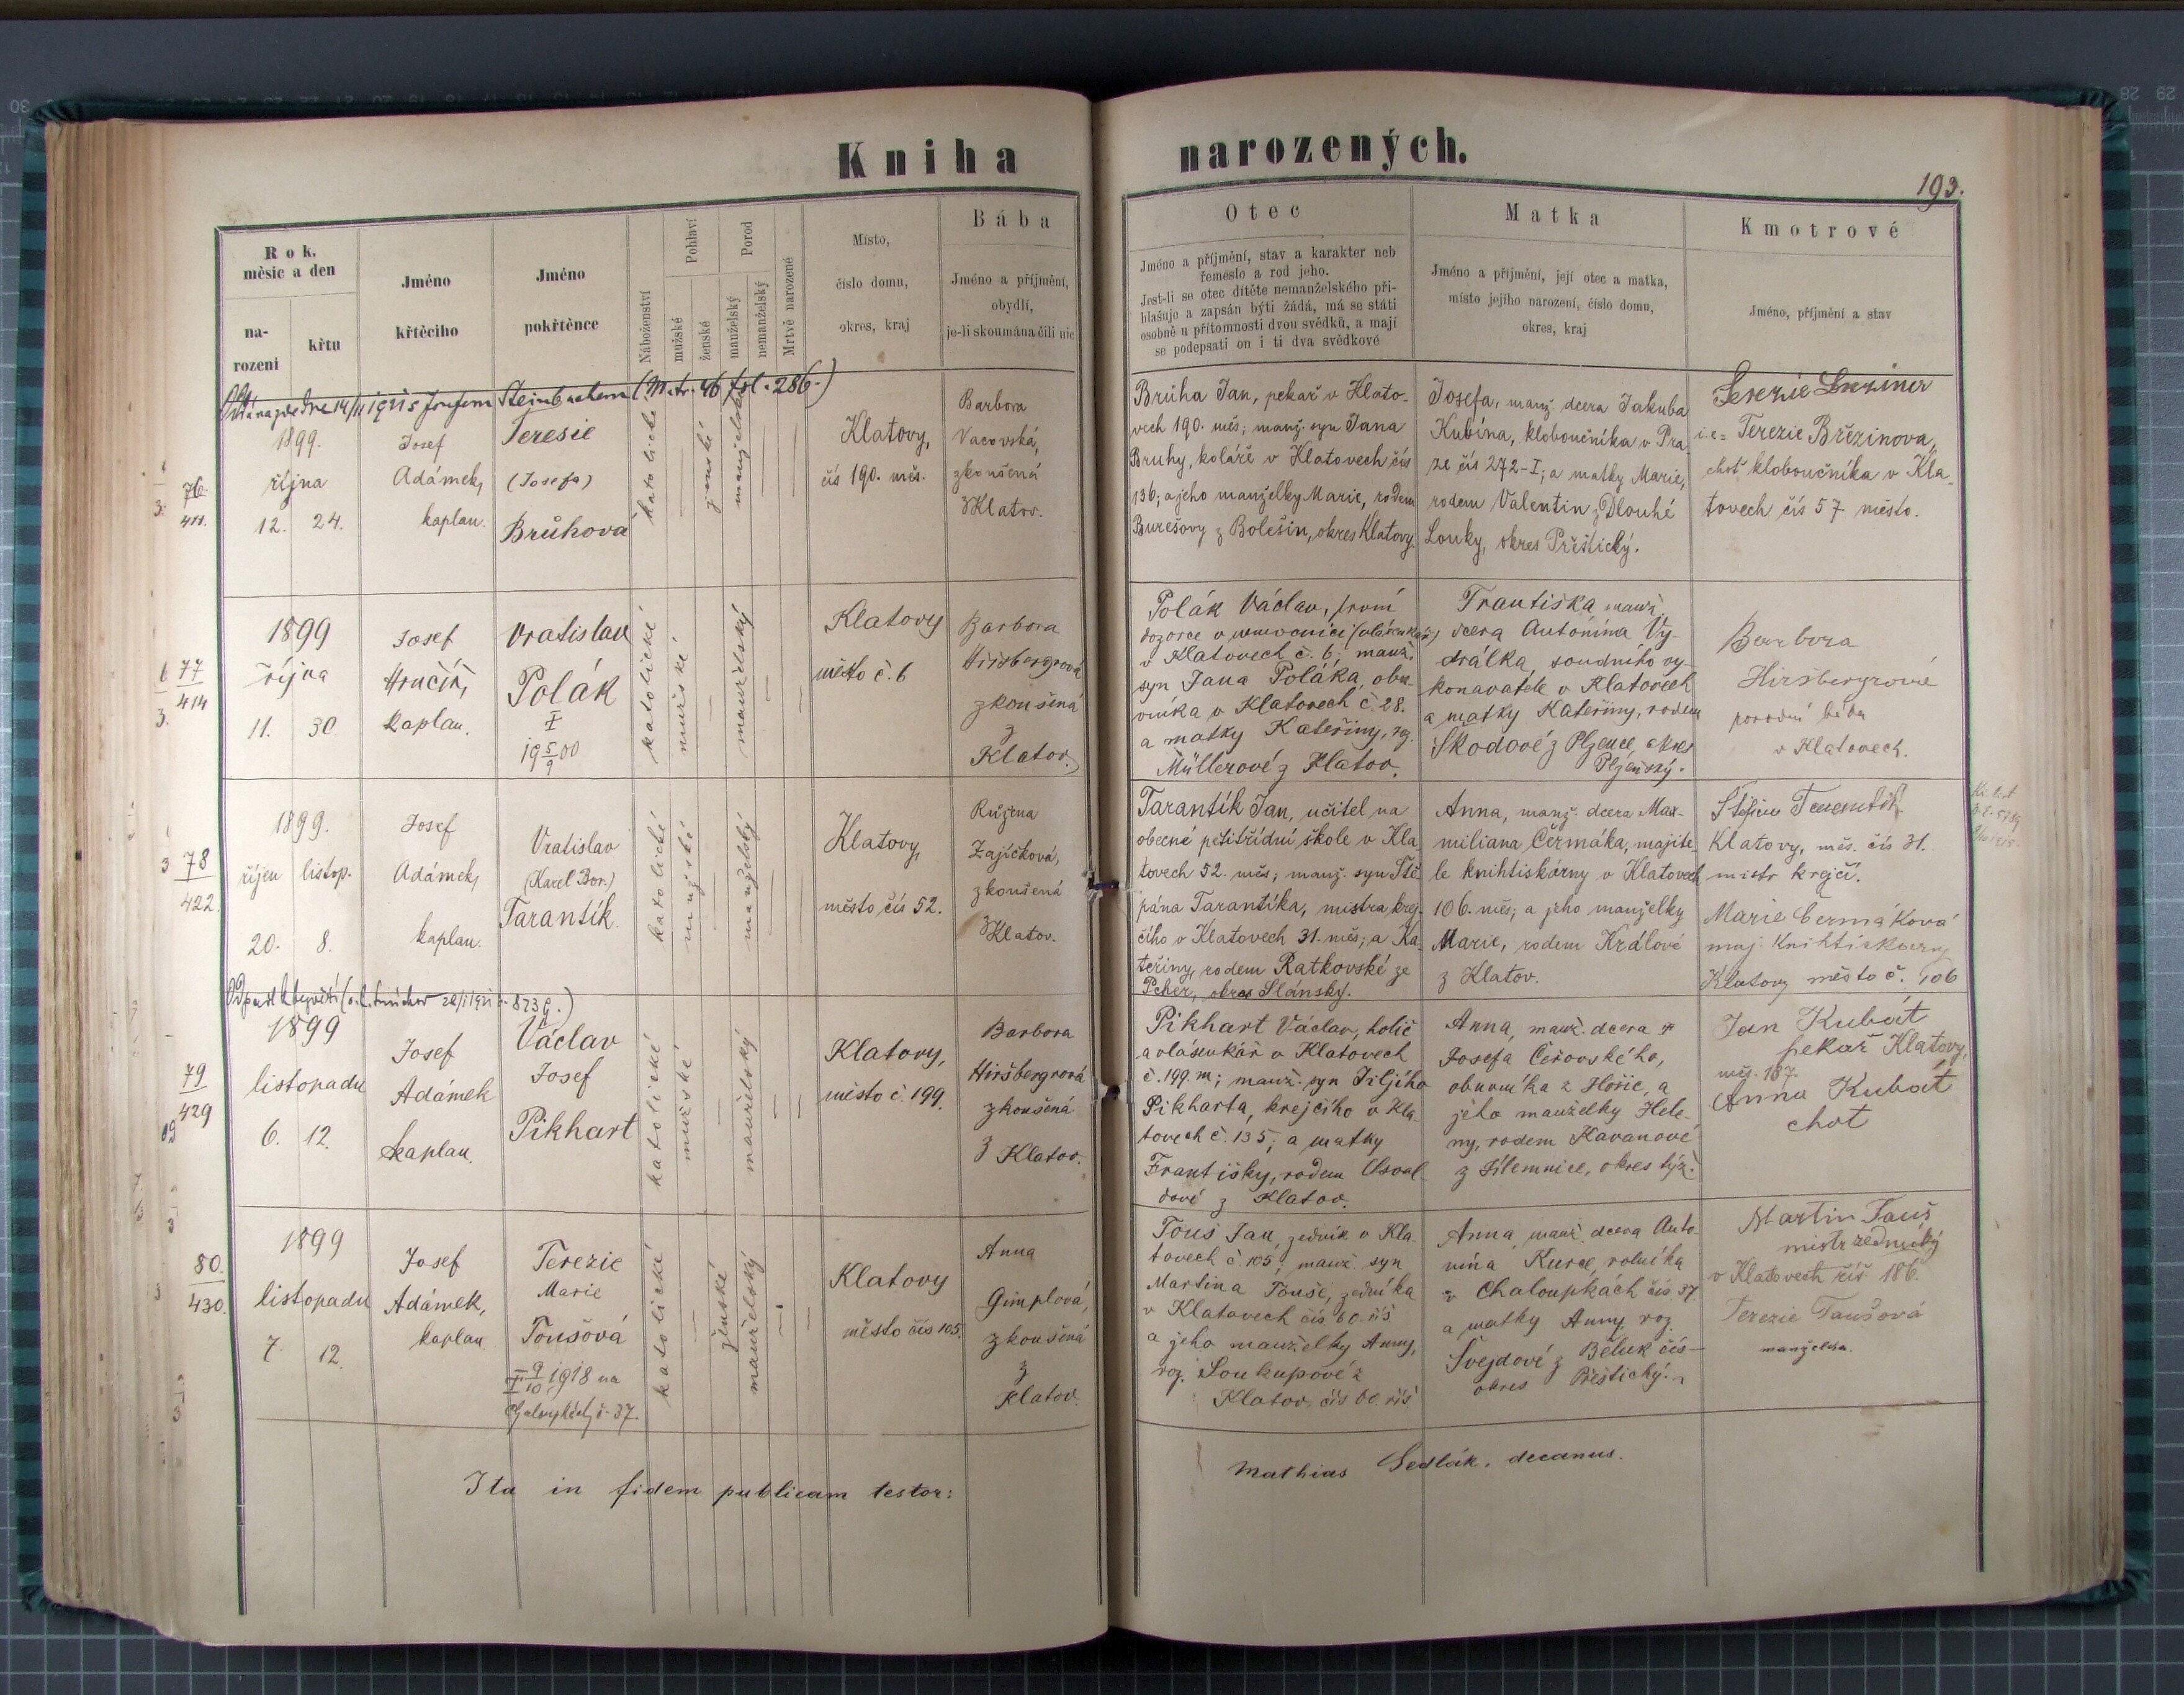 Kniha narozených.
193.
Rok, měsíc a den
narození
křtu
Jméno křtěcího
Jméno pokřtěnce
Náboženství
Pohlaví
mužské
ženské
Porod
manželský
nemanželský
Mrtvě narozené
Místo,
číslo domu,
okres, kraj
Bába
Jméno a příjmění,
obydlí,
je-li skoumána čili nic
Otec
Jméno a příjmění, stav a karakter neb
řemeslo a rod jeho.
Jest-li se otec dítěte nemanželského při-
hlašuje a zapsán býti žádá, má se státi
osobně u přítomnosti dvou svědků, a mají
se podepsati on i ti dva svědkové
Matka
Jméno a příjmění, její otec a matka,
místo jejího narození, číslo domu,
okres, kraj
Kmotrové
Jméno, příjmění a stav
Steinbachem (Matr. 46 fol. 286.)
76.
411.
1899.
října
12. 24.
Josef
Adámek,
kaplan.
Teresie
(Josefa)
Brůhová
katolické
ženské
manželský
Klatovy,
čís 190. měs.
Barbora
Vacovská,
zkoušená
z Klatov.
Brůha Jan, pekař v Klato-
vech 190. měs; manž. syn Jana
Bruhy, koláře v Klatovech čís
136; a jeho manželky Marie, rodem
Burešovy z Bolešin, okres Klatovy.
Josefa, manž. dcera Jakuba
Kubína, kloboučníka v Pra-
ze čís 272-I; a matky Marie,
rodem Valentin z Dlouhé
Louky, okres Přeštický.
i.e. = Terezie Březinova,
choť kloboučníka v Kla-
tovech čís 57 město.
77
414
1899
října
11. 30
Josef
Hručíř,
kaplan.
Vratislav
Polák
katolické
mužské
manželský
Klatovy
město č. 6
Barbora
Hiršbergrová
zkoušená
z
Klatov.
Polák Václav, první
dozorce v nemocnici
v Klatovech č. 6; manž.
syn Jana Poláka, obu-
vníka v Klatovech č. 28.
a matky Kateřiny, roz.
Müllerové z Klatov.
Františka manž.
dcera Antonína Vy-
drálka, soudního vy-
konavatele v Klatovech
a matky Kateřiny, rodem
Škodové z Plzence, okres
Plzeňský.
Barbora
Hiršbergrová
porodní bába
v Klatovech.
78
422.
1899.
říjen listop.
20. 8.
Josef
Adámek,
kaplan.
Vratislav
(Karel Bor.)
Tarantík.
katolické
mužské
manželský
Klatovy,
město čís 52.
Růžena
Zajíčková,
zkoušená
z Klatov.
Tarantík Jan, učitel na
obecné pětitřídní škole v Kla-
tovech 52. měs; manž. syn Ště-
pána Tarantíka, mistra krej-
čího v Klatovech 31. měs; a Ka-
teřiny, rodem Ratkovské ze
Peher, okres Slánský.
Anna, manž. dcera Max-
miliana Čermáka, majite-
le knihtiskárny v Klatovech
106. měs; a jeho manželky
Marie, rodem Králové
z Klatov.
Klatovy, měs. čís 31.
mistr krejčí.
Marie Čermáková
maj. Knihtiskarny
Klatovy město č. 106
79
429
1899
listopadu
6. 12.
Josef
Adámek
kaplan.
Václav
Josef
Pikhart
katolické
mužské
manželský
Klatovy,
město č. 199.
Barbora
Hiršbergrová
zkoušená
z Klatov.
Pikhart Václav, holič
a vlásenkář v Klatovech
č. 199. m; manž. syn Jiljího
Pikharta, krejčího v Kla-
tovech č. 135; a matky
Františky, rodem Osval-
dové z Klatov.
Anna, manž. dcera
Josefa Čeřovského,
obuvníka z Hořic, a
jeho manželky Hele-
ny, rodem Kavanové
z Jilemnice, okres týž.
Jan Kubát
pekař Klatovy,
měs. 187.
Anna Kubát
chot
80.
430.
1899
listopadu
7. 12.
Josef
Adámek,
kaplan.
Terezie
Marie
Toušová
1918 na
č. 37.
katolické
ženské
manželský
Klatovy
město čís 105.
Anna
Gimplová,
zkoušená
z
Klatov.
Touš Jan, zedník v Kla-
tovech č. 105; manž. syn
Martina Touše, zedníka
v Klatovech čís 60. říš
a jeho manželky Anny,
roz. Soukupové z
Klatov. čís 60. říš.
Anna, manž. dcera Anto-
nína Kurce, rolníka
v Chaloupkách čís 37.
a matky Anny, roz.
Švejdové z Běluk čís —
okres Přeštický.
Martin Tauš
mistr zednický
v Klatovech říš 186.
Terezie Taušová
manželka.
Ita in fidem publicam testor:
Mathias Sedlák, decanus.